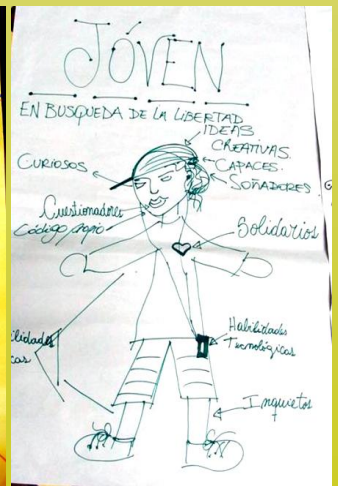 JÓVEN
EN BUSQUEDA DE LA LIBERTAD
IDEAS.
CREATIVAS.
CURIOSOS
CAPACES.
SOÑADORES.
Cuestionadores
Código propio
Solidarios
Habilidades
Tecnológicas
Inquietos